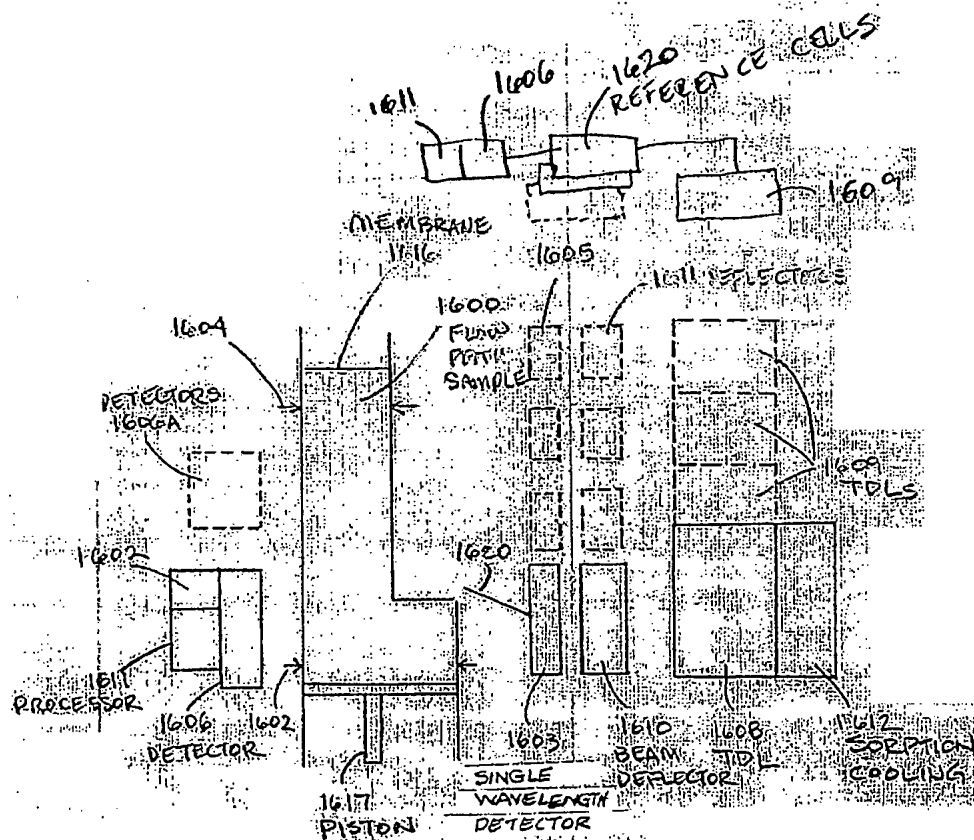 1611
1606
1620
REFERENCE CELLS
1609
MEMBRANE
1616
1605
1611
1604
1600
FLOW
PATH
SAMPLE
DETECTORS
1606A
1609
TDLS
1602
1620
PROCESSOR
1606
DETECTOR
1602
1603
1610
BEAM
DEFLECTOR
1608
TDL
1612
SORPTION
COOLING
1617
PISTON
SINGLE
WAVELENGTH
DETECTOR